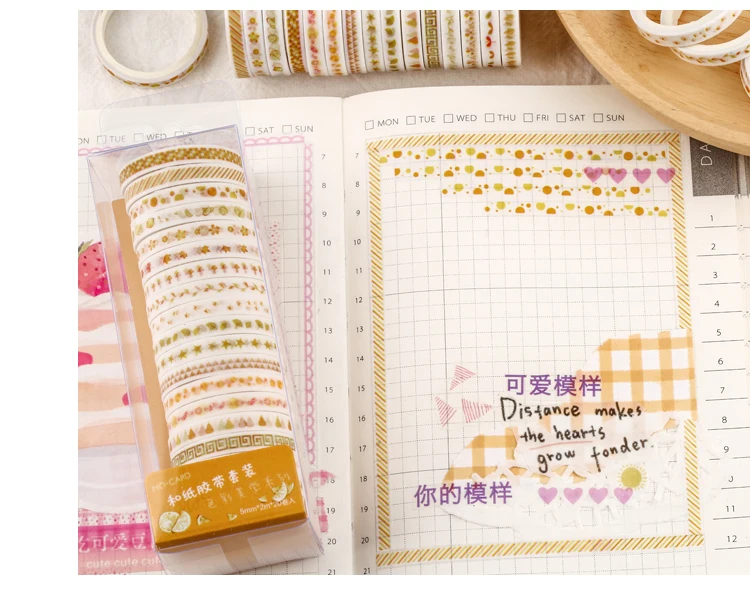 TUE WED
SAT SUN
MON TUE WED THU FRI SAT SUN
DA
7
8
9
10
11
12
13
14
15
16
17
18
19
20
21
7
8
9
10
11
12
13
14
15
16
17
18
19
20
21
1
2
3
4
5
6
7
8
9
10
11
12
可爱模样
Distance makes
the hearts
grow fonder.
你的模样
CARD
和纸胶带套装
5mm*2m*20卷入
可爱
cute cute cute